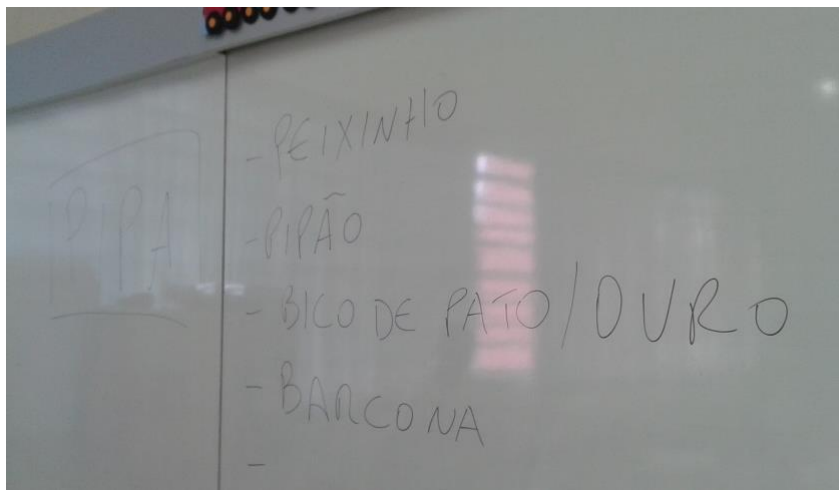 PIPA
- PEIXINHO
- PIPÃO
- BICO DE PATO/OURO
- BARCONA
-